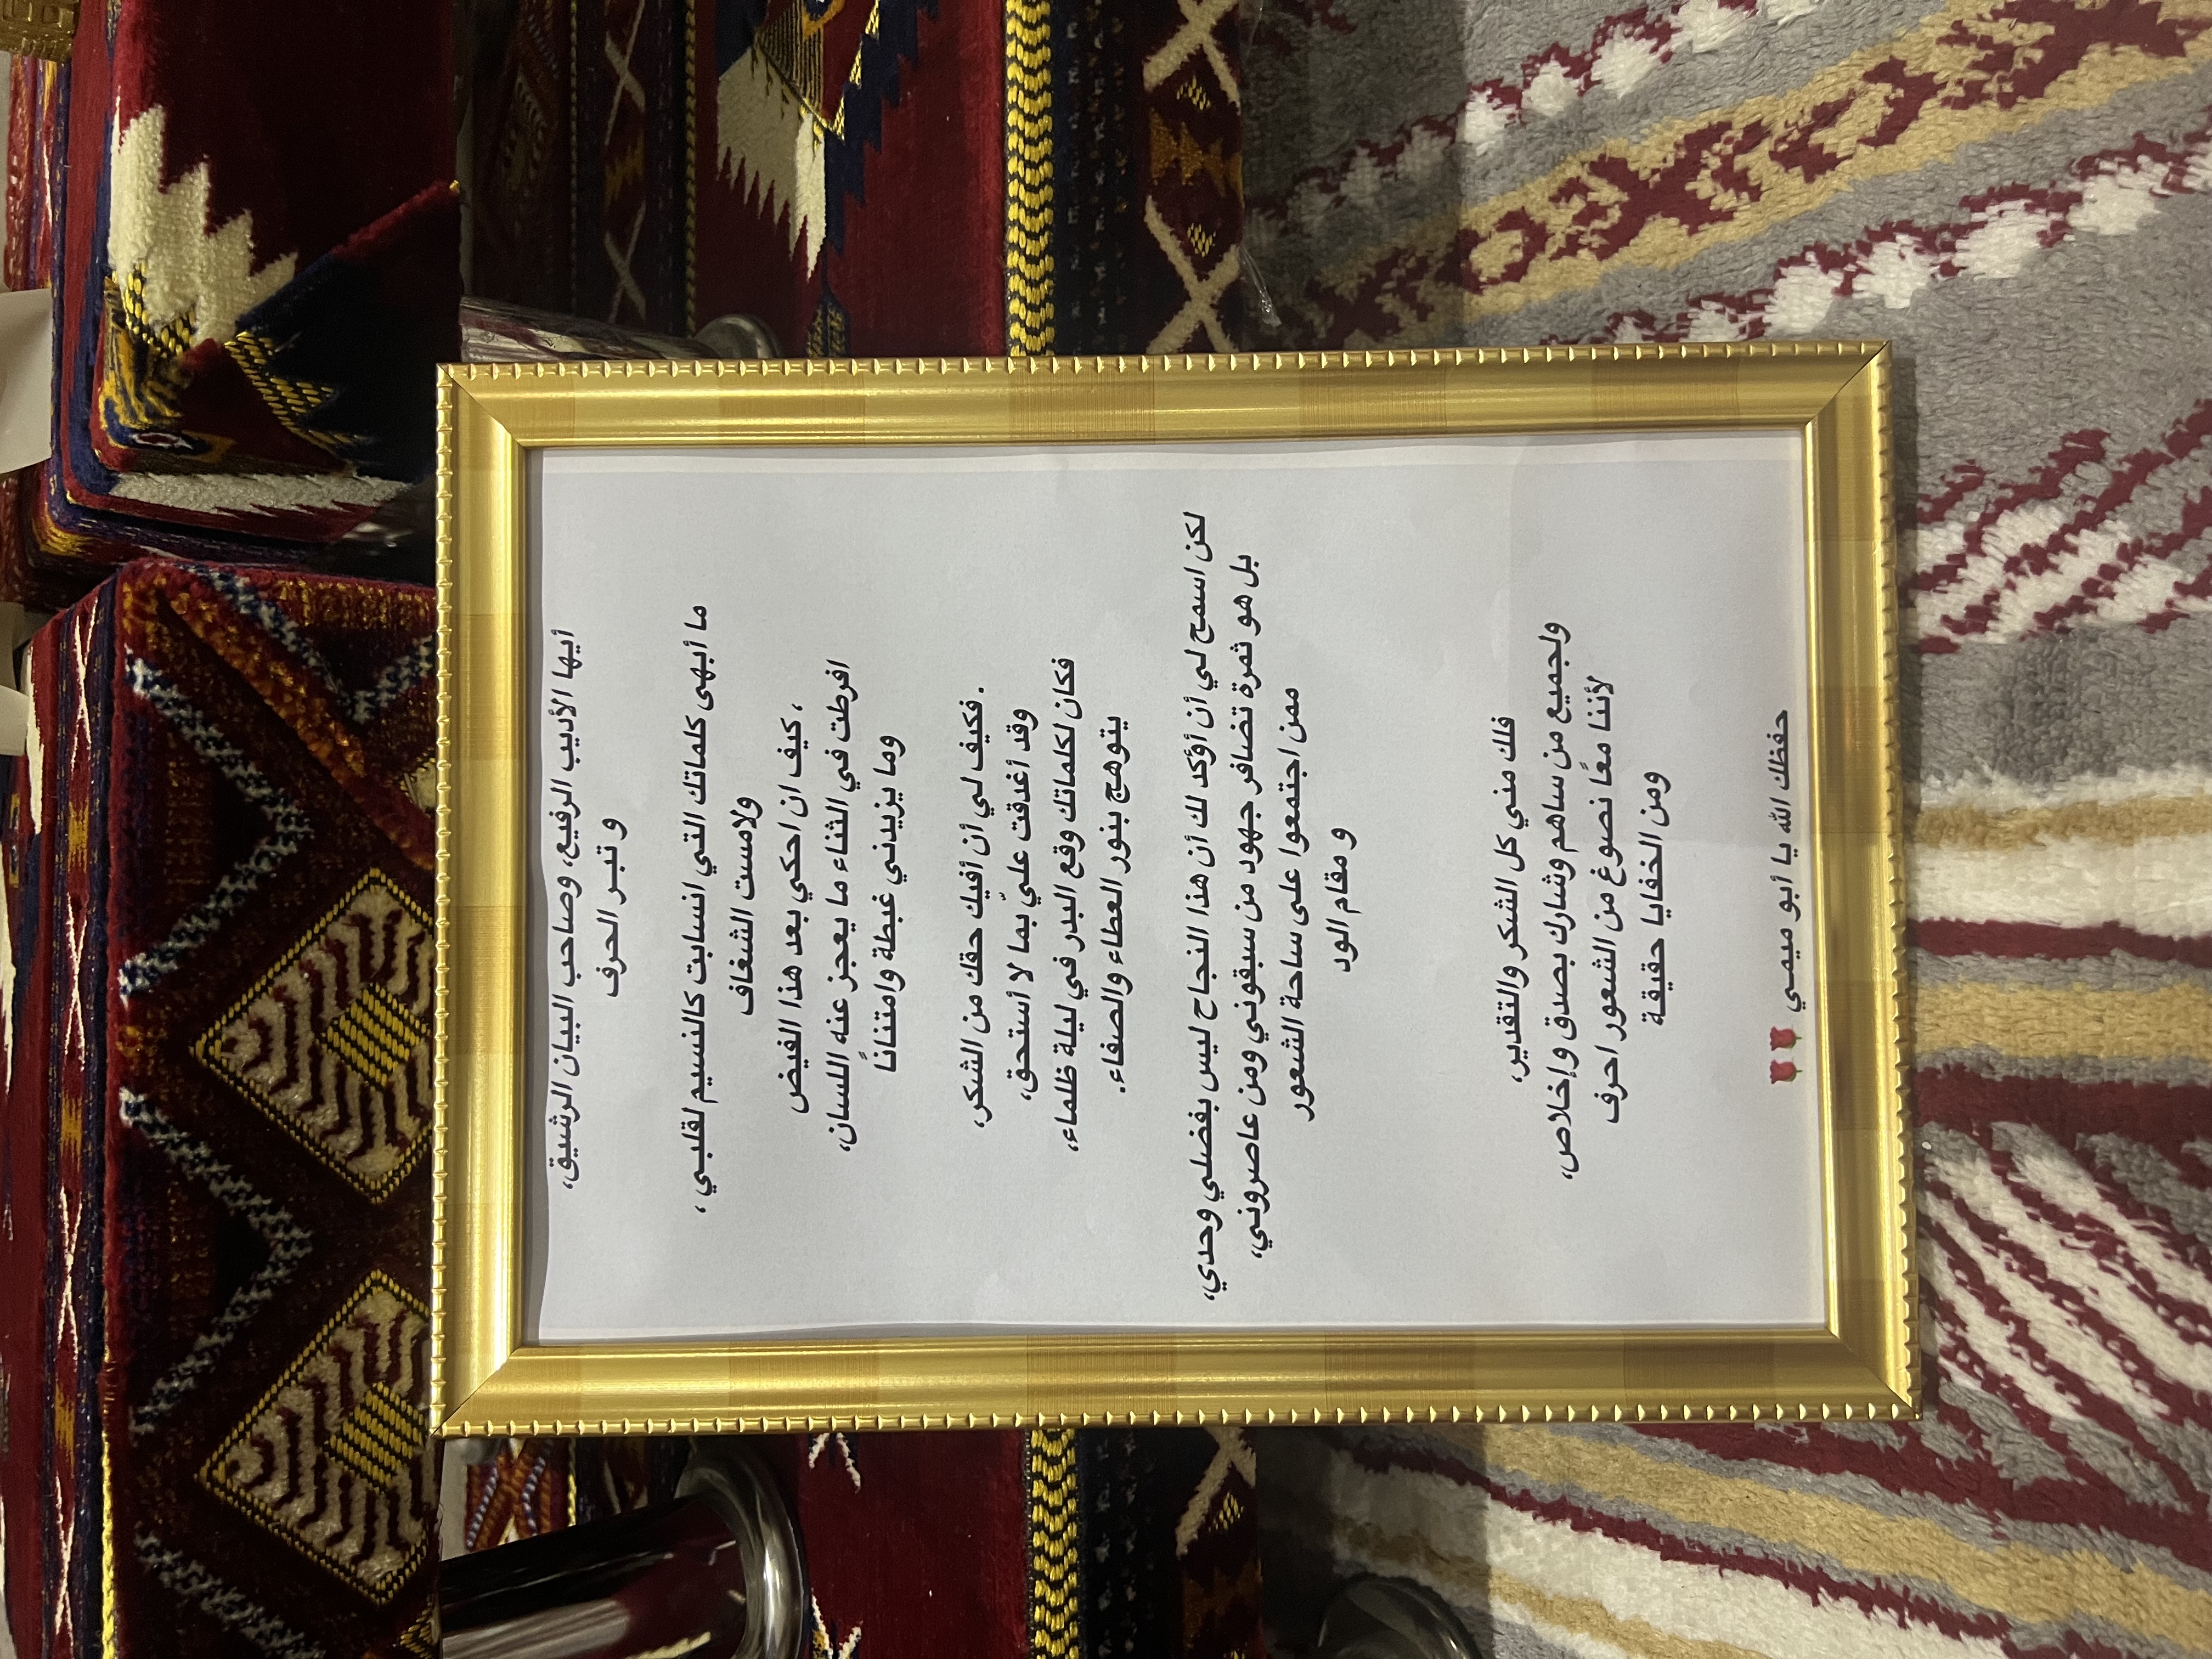 أيها الأديب الرفيع، وصاحب البيان الرشيق،
و تبر الحرف
ما أبهى كلماتك التي انسابت كالنسيم لقلبي ،
ولامست الشغاف
، كيف ان احكي بعد هذا الفيض
افرطت في الثناء ما يعجز عنه اللسان،
وما يزيدني غبطة وامتنانًا
. فكيف لي أن أفيك حقك من الشكر،
وقد أغدقت عليّ بما لا أستحق،
فكان لكلماتك وقع البدر في ليلة ظلماء،
يتوهج بنور العطاء والصفاء.
لكن اسمح لي أن أؤكد لك أن هذا النجاح ليس بفضلي وحدي،
بل هو ثمرة تضافر جهود من سبقوني ومن عاصروني،
ممن اجتمعوا على ساحة الشعور
و مقام الود
فلك مني كل الشكر والتقدير،
ولجميع من ساهم وشارك بصدق وإخلاص،
لأننا معًا نصوغ من الشعور احرف
ومن الخفايا حقيقة
حفظك الله يا أبو ميمي 🌹🌹